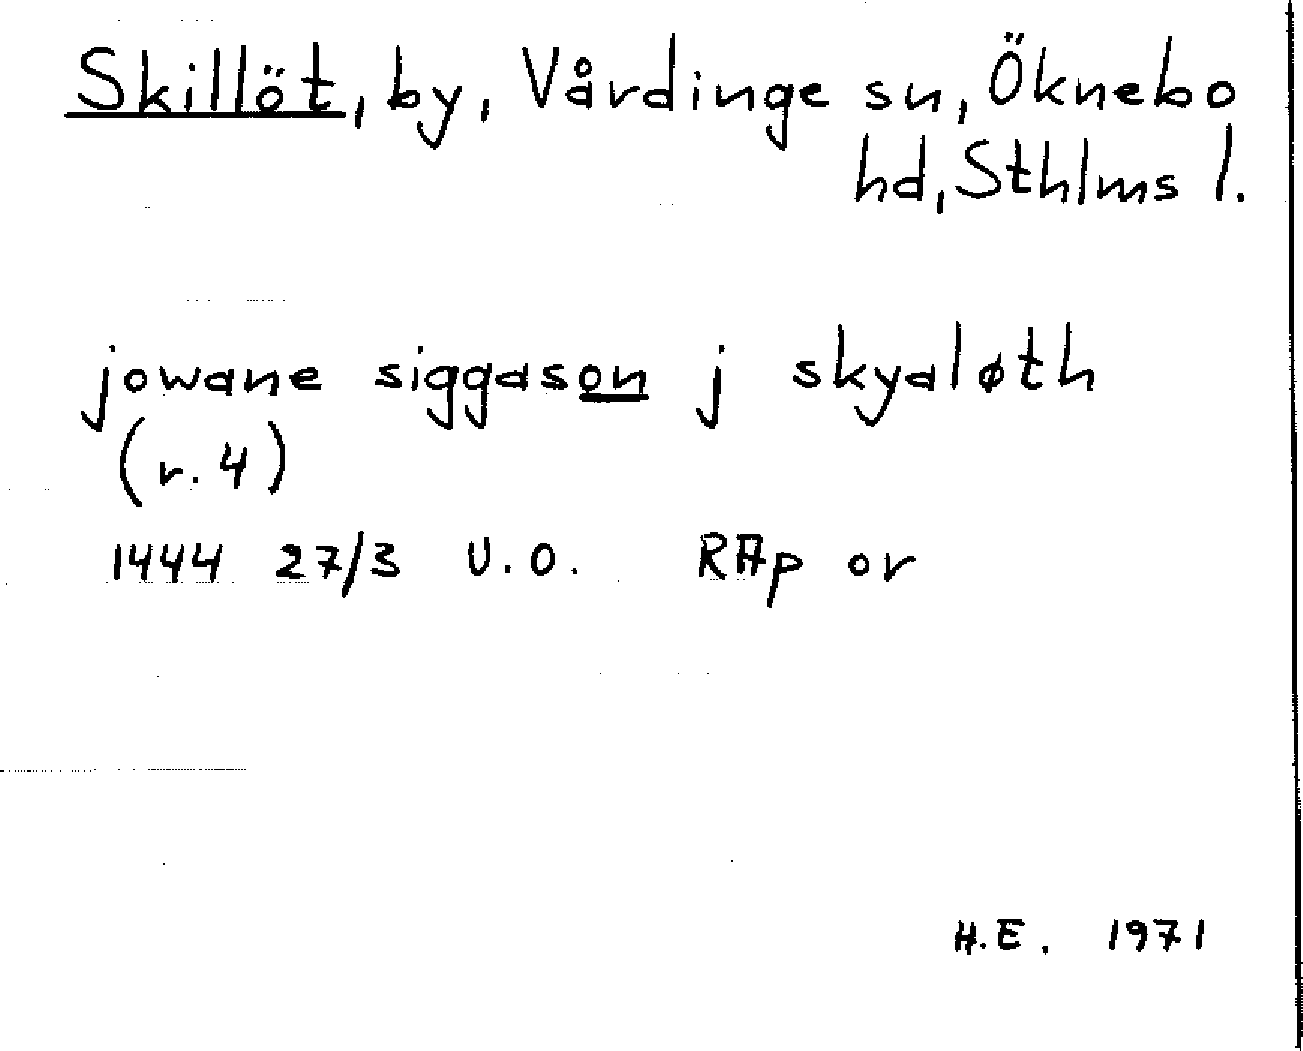 Skillöt, by, Vårdinge sn, Öknebo
hd, Sthlms l.
jowane siggason j skyaløth
(r. 4)
1444 27/3 U.O. RAp or
H.E. 1971